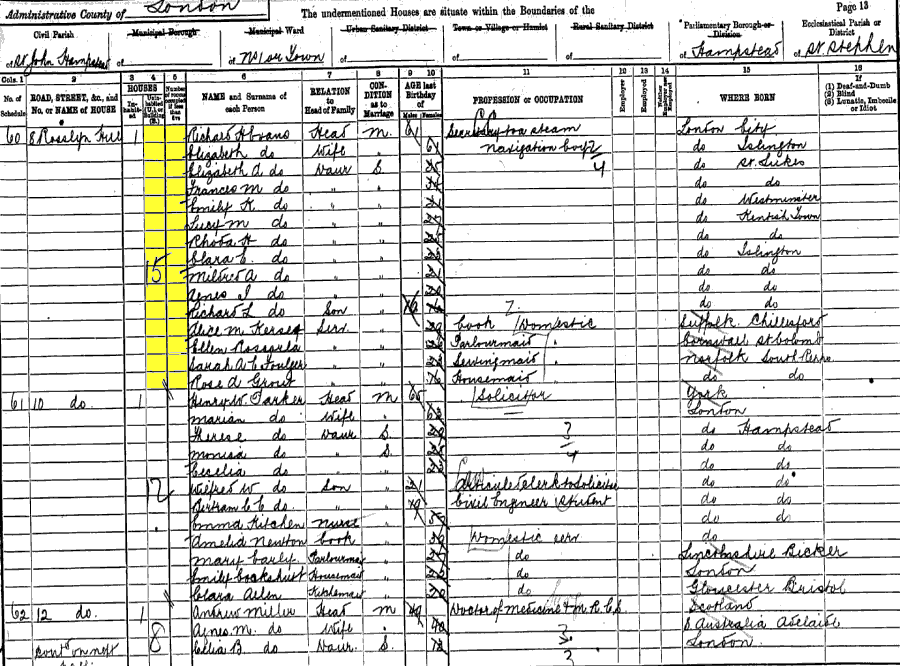 Administrative County of London
The undermentioned Houses are situate within the Boundaries of the
Page 13
Civil Parish
Municipal Borough
Municipal Ward
Urban Sanitary District
Town or Village or Hamlet
Rural Sanitary District
Parliamentary Borough or Division
Ecclesiastical Parish or District
of St John Hampstead
of
of No 1 or Town
of
of
of
of Hampstead
of St Stephen
Cols. 1 2 3 4 5 6 7 8 9 10 11 12 13 14 15 16
No. of Schedule
ROAD, STREET, &c., and No. or NAME of HOUSE
HOUSES
In-habit-ed
NAME and Surname of each Person
RELATION to Head of Family
CONDITION as to Marriage
AGE last Birthday of
Males Females
PROFESSION or OCCUPATION
Employer
Employed
WHERE BORN
If
(1) Deaf-and-Dumb
(2) Blind
(3) Lunatic, Imbecile or Idiot
60 8 Rosslyn Hill 1 Richard H Evans Head M 61 Secretary to a steam London City
Elizabeth do Wife " navigation do Islington
Elizabeth A. do Daur S. do St. Lukes
Frances M do " " do do
Emily K. do " " do Westminster
Lucy M do " " do Kentish Town
Rhoda H do " " do do
Clara E. do " " do Islington
15 Mildred A do " " do do
Agnes J do " " do do
Richard L do Son " 16 do do
Alice M Kersey Serv " Cook Domestic Suffolk Chillesford
Ellen " Parlourmaid " Cornwall St Colomb
Sarah A E Foulger " " Sewingmaid " Norfolk South
Rose A Grout " " Housemaid " do do
61 10 do. 1 Henry W Parker Head M 65 Solicitor York
Marian do Wife " London
Therese do Daur S. do Hampstead
Monica do " S. do do
Cecelia do " " do do
12 Wilfred W do Son " 21 Articuled Clerk to Solicitor do do
Bertram C E do. " " 19 Civil Engineer Student do do
Emma Kitchen Nurse do do
Amelia Newton Cook " Domestic serv do
Mary Early Parlourmaid " do Lincolnshire Bicker
Emily Cockshutt Housemaid " do London
Clara Allen Kitchenmaid " do Gloucester Bristol
62 12 do. 1 Andrew Miller Head M 49 Doctor of medicine & M.R.C.S. Scotland
Agnes M. do Wife " 40 S Australia Adelaide
8 B. do Daur S. London
cont'd on next